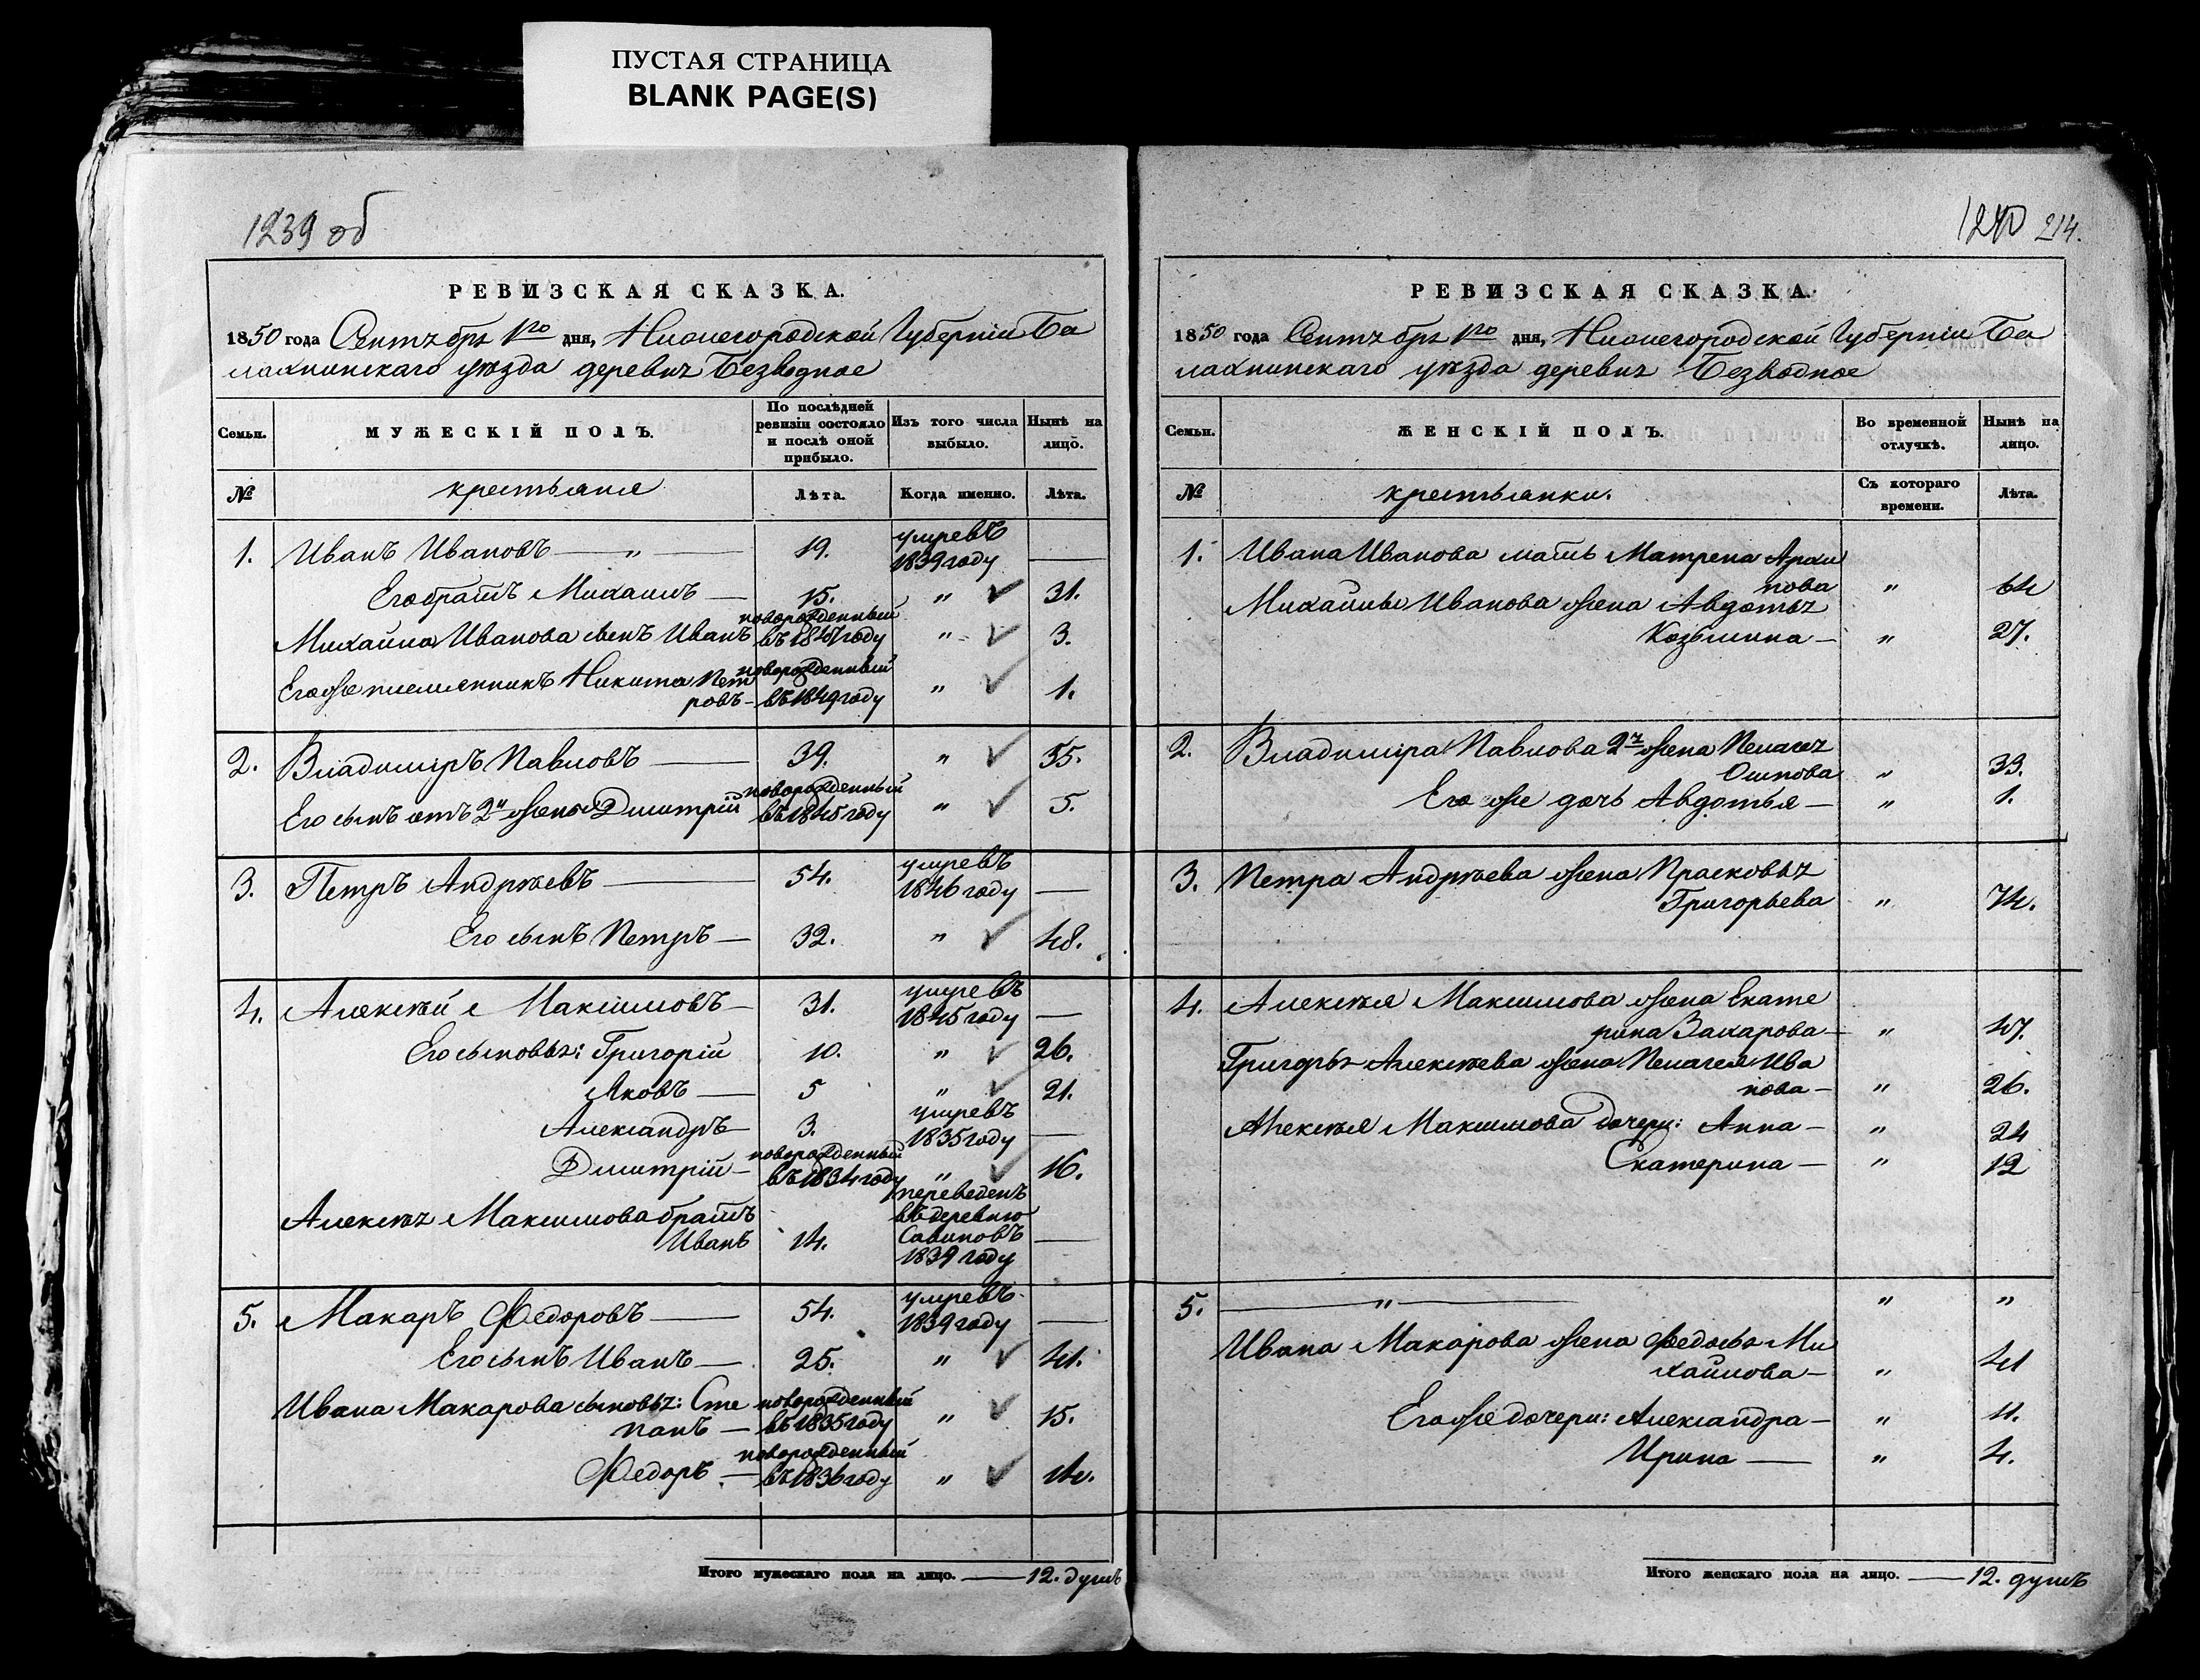 ПУСТАЯ СТРАНИЦА
BLANK PAGE(S)
1239 об
РЕВИЗСКАЯ СКАЗКА.
1850 года Сентября 1го дня, Нижегородской Губерніи Ба
лахнинскаго уѣзда деревни Безводное
Семьи.
МУЖЕСКІЙ ПОЛЪ.
По послѣдней ревизіи состояло и послѣ оной прибыло.
Изъ того числа выбыло.
Нынѣ на лицо.
№
крестьяне
Лѣта.
Когда именно.
Лѣта.
1. Иванъ Ивановъ — „ — 19. умревъ 1839 году —
Его братъ Михаилъ — 15. „ 31.
Михайла Иванова сынъ Иванъ новорожденный въ 1847 году „ 3.
Его же племянникъ Никита Пет
ровъ — новорожденный въ 1849 году „ 1.
2. Владиміръ Павловъ — 39. „ 55.
Его сынъ отъ 2й жены Дмитрій новорожденный въ 1845 году „ 5.
3. Петръ Андреевъ — 54. умревъ 1846 году —
Его сынъ Петръ — 32. „ 48.
4. Алексѣй Максимовъ — 31. умревъ 1845 году —
Его сыновья: Григорій 10. „ 26.
Яковъ — 5 „ 21.
Александръ — 3. умревъ 1835 году —
Дмитрій — новорожденный въ 1834 году „ 16.
Алексѣя Максимова братъ
Иванъ 14. переведенъ въ деревню Савиновъ 1839 году —
5. Макаръ Федоровъ — 54. умревъ 1839 году —
Его сынъ Иванъ — 25. „ 41.
Ивана Макарова сыновья: Сте
панъ — новорожденный въ 1835 году „ 15.
Федоръ — новорожденный въ 1836 году „ 14.
Итого мужескаго пола на лицо. — 12. душъ
1240 214.
РЕВИЗСКАЯ СКАЗКА.
1850 года Сентября 1го дня, Нижегородской Губерніи Ба
лахнинскаго уѣзда деревни Безводное
Семьи.
ЖЕНСКІЙ ПОЛЪ.
Во временной отлучкѣ.
Нынѣ на лицо.
№
крестьянки.
Съ котораго времени.
Лѣта.
1. Ивана Иванова мать Матрена Архи
пова „ 64
Михайлы Иванова жена Авдотья
Козьмина — „ 27.
2. Владиміра Павлова 2я жена Пелагея
Осипова „ 33.
Его же дочь Авдотья — „ 1.
3. Петра Андреева жена Прасковья
Григорьева „ 74.
4. Алексѣя Максимова жена Екате
рина Захарова — „ 47.
Григорья Алексѣева жена Пелагея Ива
нова — „ 26.
Алексѣя Максимова дочери: Анна — „ 24
Екатерина — „ 12
5. — „ — „ „
Ивана Макарова жена Федосья Ми
хайлова — „ 41
Его же дочери: Александра — „ 11.
Ирина — „ 4.
Итого женскаго пола на лицо. — 12. душъ